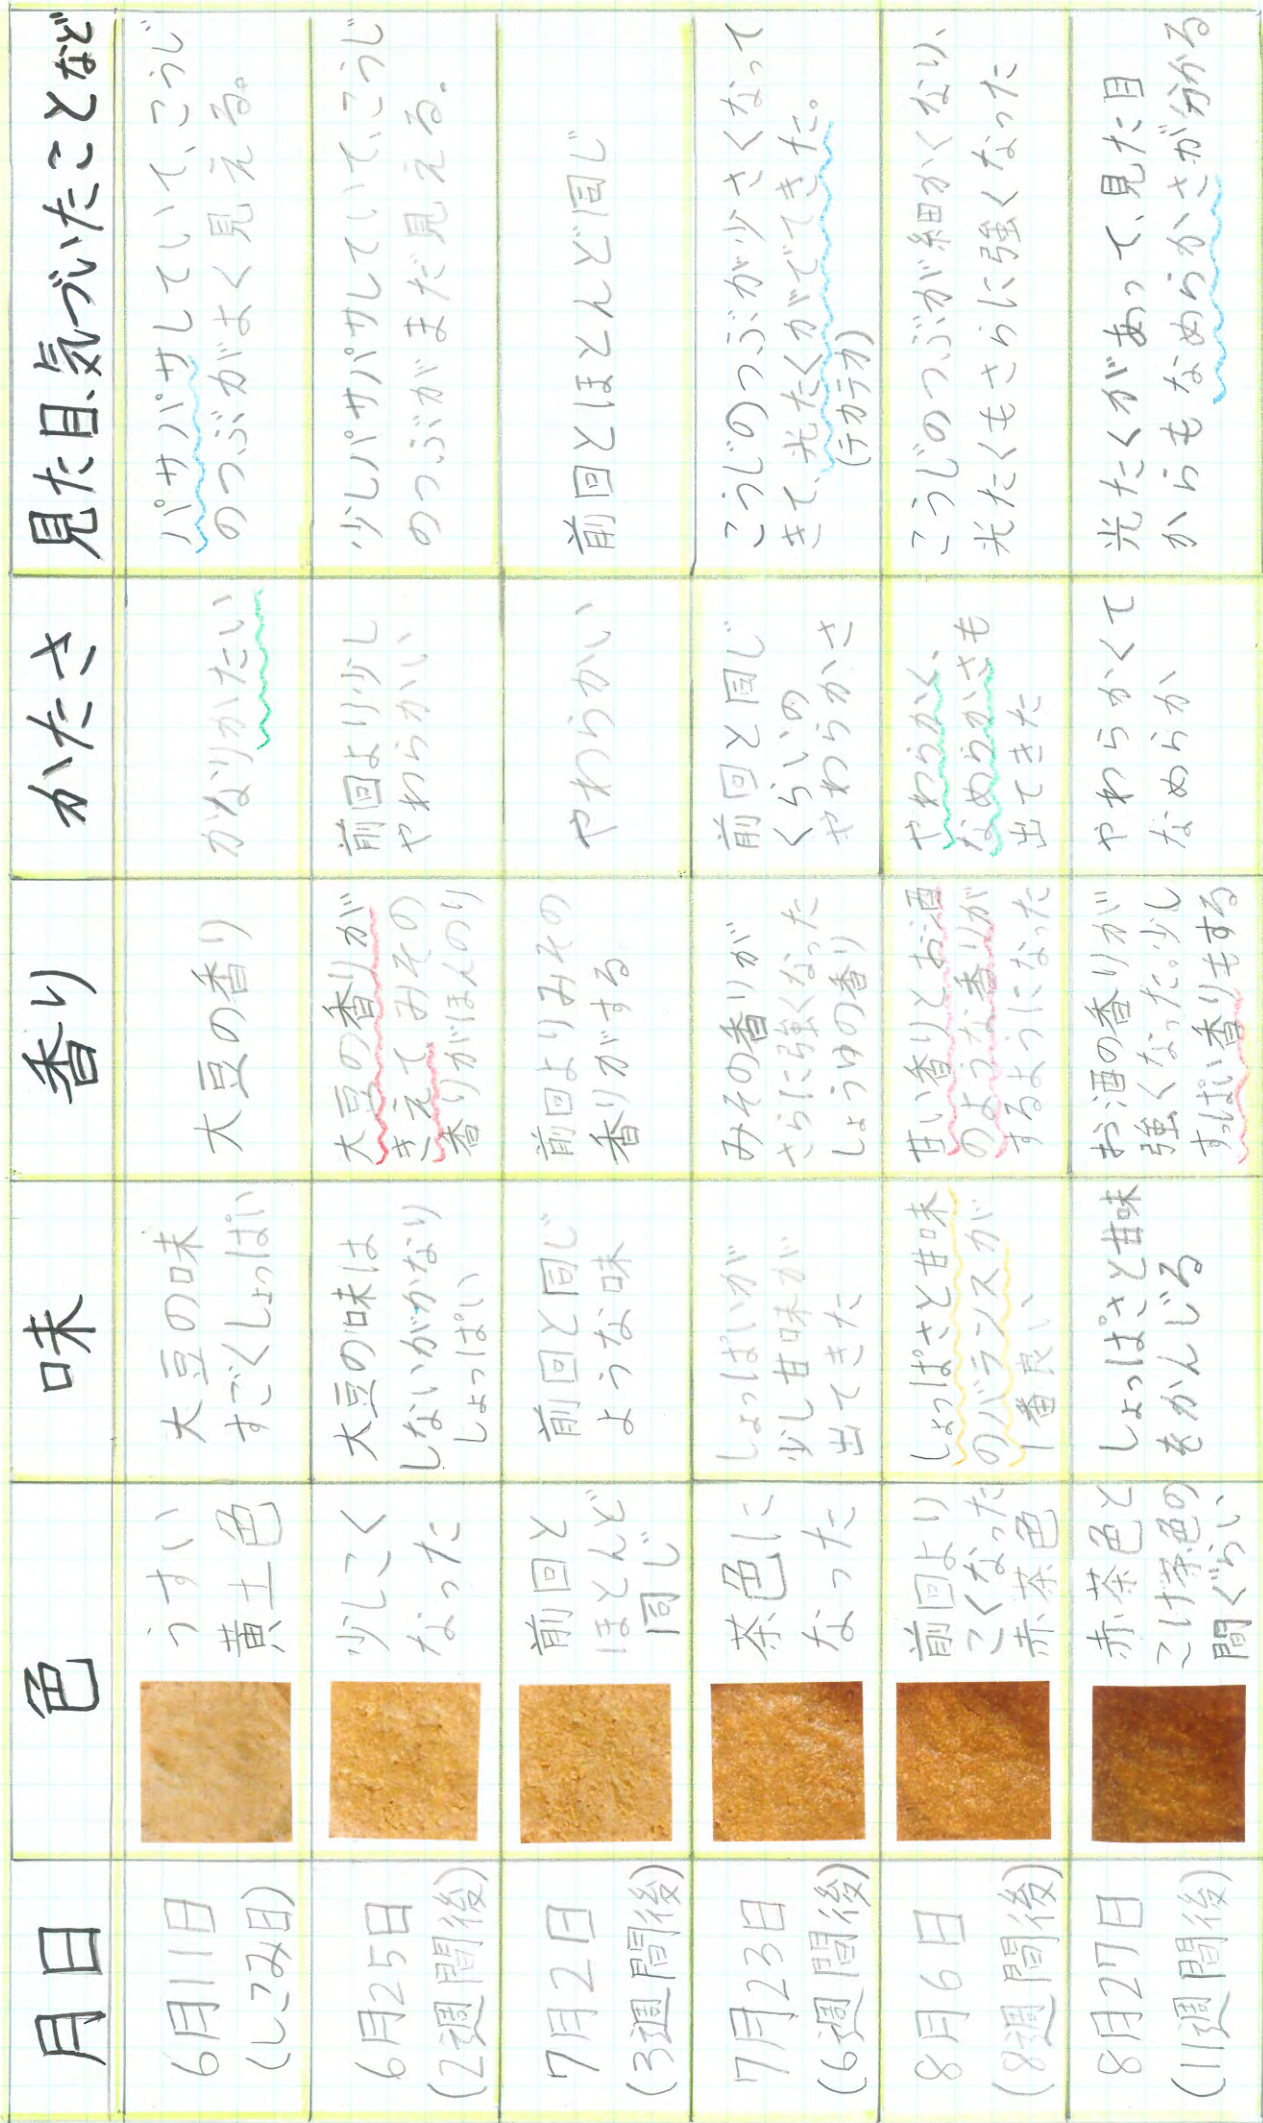 月日
色
味
香り
かたさ
見た目、気づいたことなど
6月11日
(しこみ日)
うすい
黄土色
大豆の味
すごくしょっぱい
大豆の香り
かなりかたい
パサパサしていて、こうじ
のつぶがよく見える。
6月25日
(2週間後)
少しこく
なった
大豆の味は
しないがかなり
しょっぱい
大豆の香りが
きえてみその
香りがほんのり
前回より少し
やわらかい
少しパサパサしていて、こうじ
のつぶがまだ見える。
7月2日
(3週間後)
前回と
ほとんど
同じ
前回と同じ
ような味
前回よりみその
香りがする
やわらかい
前回とほとんど同じ
7月23日
(6週間後)
茶色に
なった
しょっぱいが
少し甘味が
出てきた
みその香りが
さらに強くなった
しょうゆの香り
前回と同じ
くらいの
やわらかさ
こうじのつぶが少さくなって
きて、光たくがでてきた。
(テカテカ)
8月6日
(8週間後)
前回より
こくなった
赤茶色
しょっぱさと甘味
のバランスが
一番良い
甘い香りとお酒
のような香りが
するようになった
やわらかく、
なめらかさも
出てきた
こうじのつぶが細かくなり、
光たくもさらに強くなった
8月27日
(11週間後)
赤茶色と
こげ茶色の
間ぐらい
しょっぱさと甘味
をかんじる
お酒の香りが
強くなった。少し
すっぱい香りもする
やわらかくて
なめらか
光たくがあって、見た目
からもなめらかさが分かる